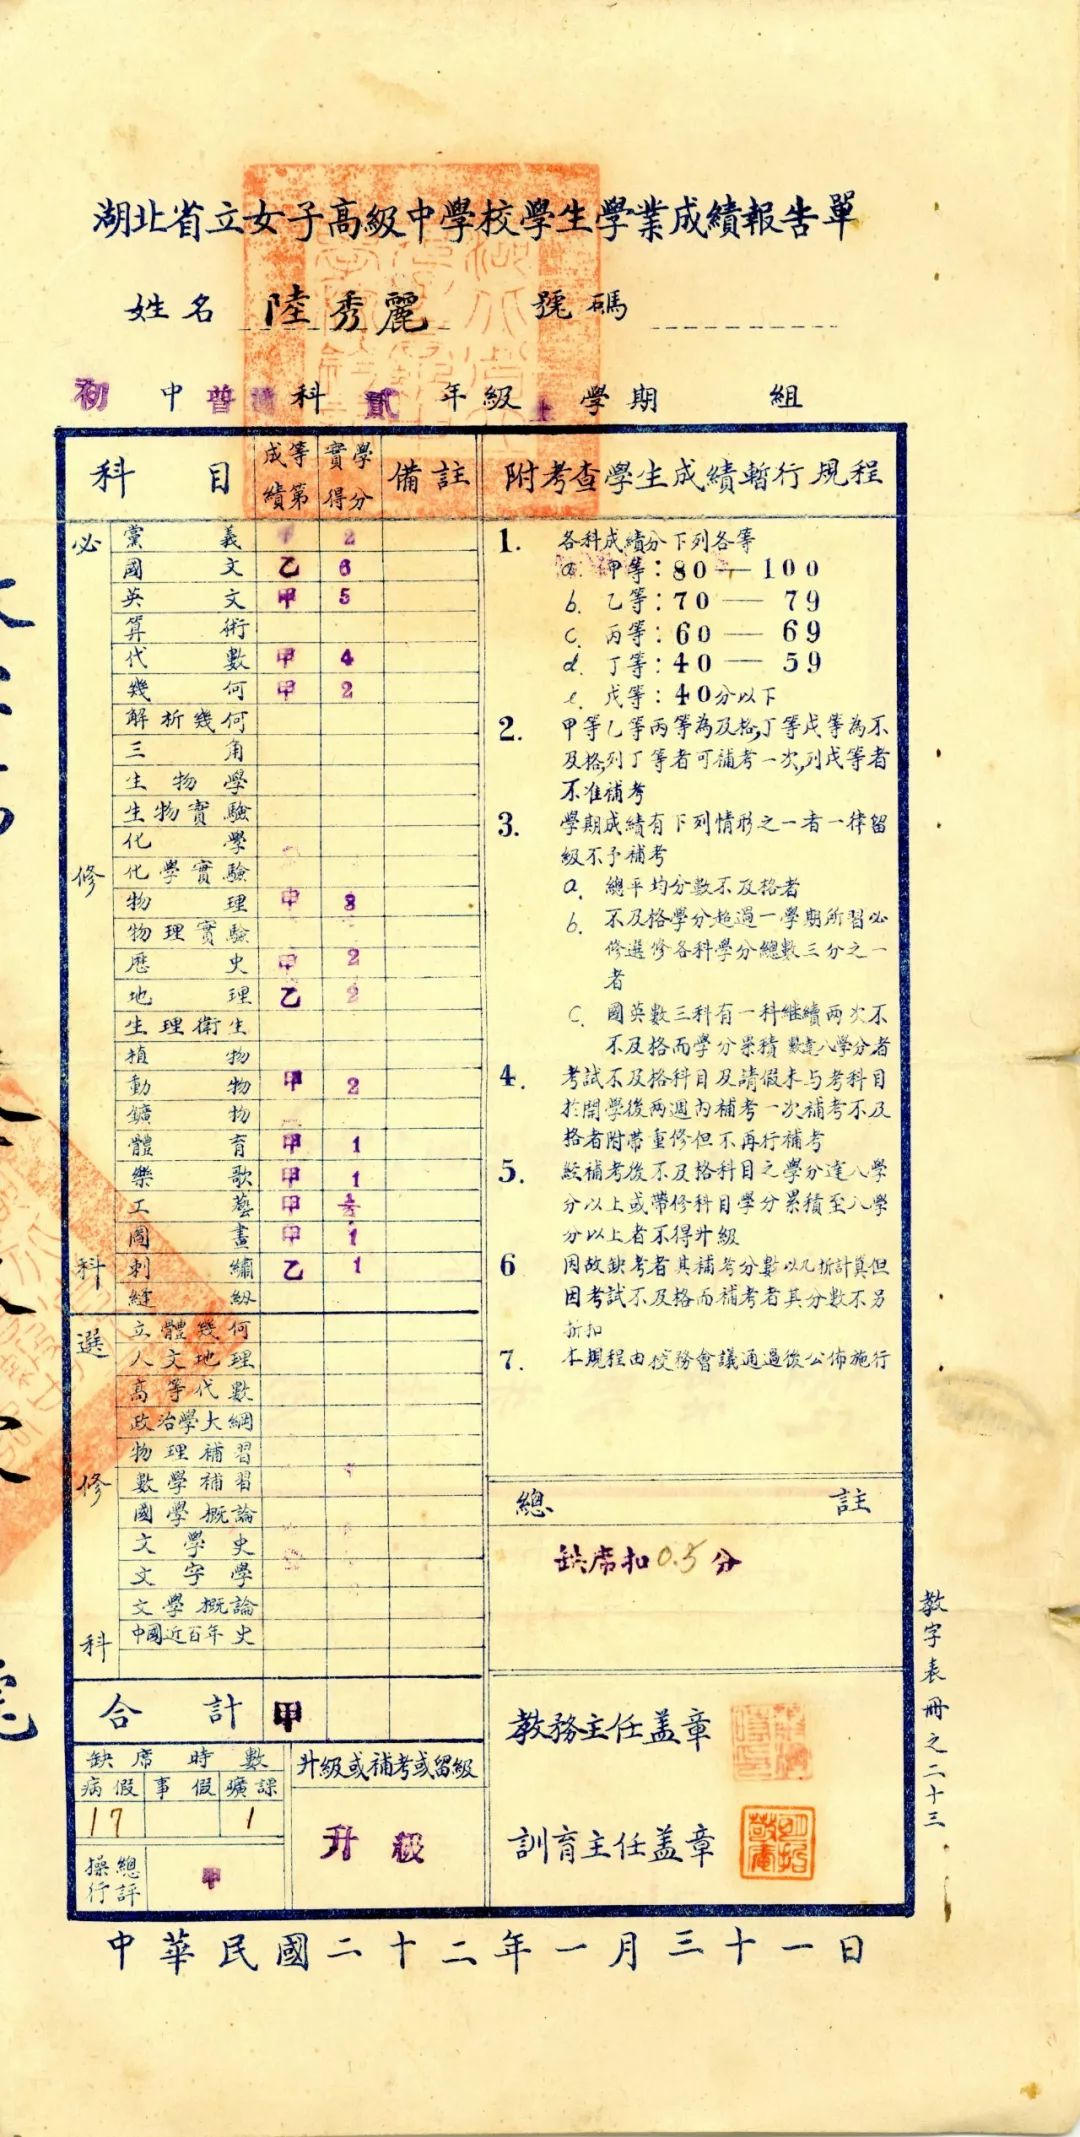 湖北省立女子高級中學校學生學業成績報告單
姓名 陸秀麗 號碼
初 中 普通 科 貳 年級 上 學期 組
科目 成績等第 實得學分 備註
必修科
黨義 甲 2
國文 乙 6
英文 甲 5
算術
代數 甲 4
幾何 甲 2
解析幾何
三角
生物學
生物實驗
化學
化學實驗
物理 甲 3
物理實驗
歷史 甲 2
地理 乙 2
生理衛生
植物
動物 甲 2
鑛物
體育 甲 1
樂歌 甲 1
工藝 甲 ½
圖畫 甲 1
刺繡 乙 1
縫紉
選修科
立體幾何
人文地理
高等代數
政治學大綱
物理補習
數學補習
國學概論
文學史
文字學
文學概論
中國近百年史
合計 甲
缺席時數
病假 事假 曠課
17 1
操行總評 甲
升級或補考或留級
升級
附考查學生成績暫行規程
1. 各科成績分下列各等
a. 甲等：80—100
b. 乙等：70—79
c. 丙等：60—69
d. 丁等：40—59
e. 戊等：40分以下
2. 甲等乙等丙等為及格,丁等戊等為不
及格,列丁等者可補考一次,列戊等者
不准補考
3. 學期成績有下列情形之一者一律留
級不予補考
a. 總平均分數不及格者
b. 不及格學分超過一學期所習必
修選修各科學分總數三分之一
者
c. 國英數三科有一科継續兩次不
不及格而學分累積數達八學分者
4. 考試不及格科目及請假未与考科目
於開學後兩週內補考一次補考不及
格者附帶重修但不再行補考
5. 經補考後不及格科目之學分達八學
分以上或帶修科目學分累積至八學
分以上者不得升級
6 因故缺考者其補考分數以九折計算但
因考試不及格而補考者其分數不另
折扣
7. 本規程由校務會議通過後公佈施行
總註
缺席扣0.5分
教務主任盖章
訓育主任盖章
教字表冊之二十三
中華民國二十二年一月三十一日